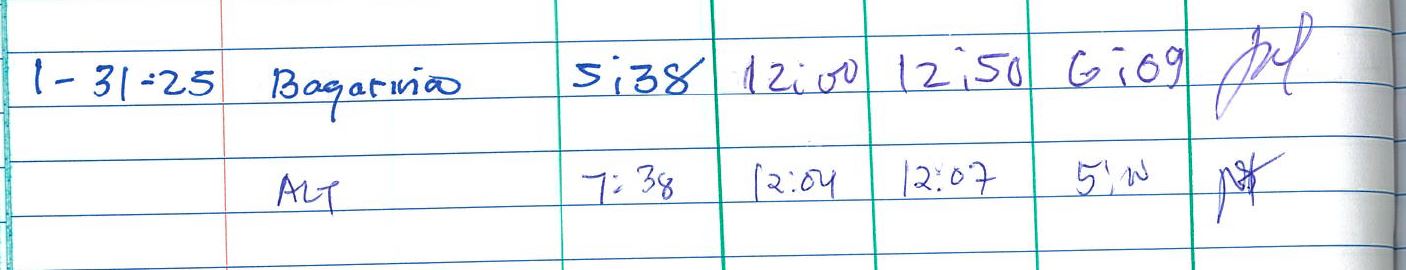 1-31-25 Bagarinao 5:38 12:00 12:50 6:09
ALT 7:38 12:04 12:07